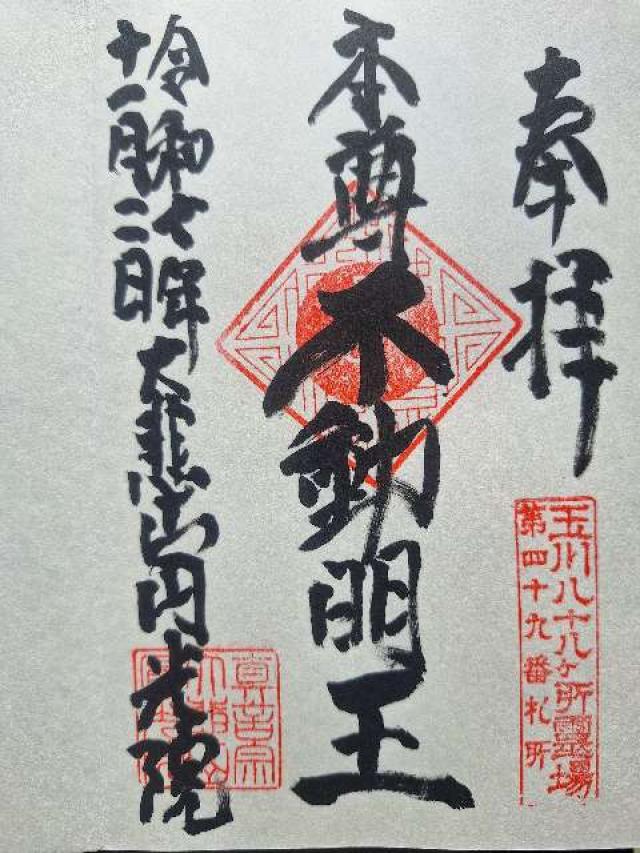 奉拝
玉川八十八ヶ所靈場
第四十九番札所
本尊不動明王
令和七年
十一月二日
大悲山円光院
真言宗